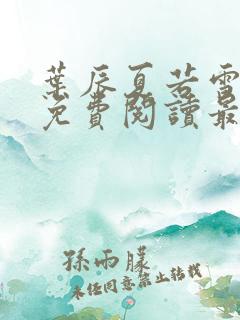 葉辰夏若雪
免費閱讀最
孫雨朦
未經同意禁止轉載